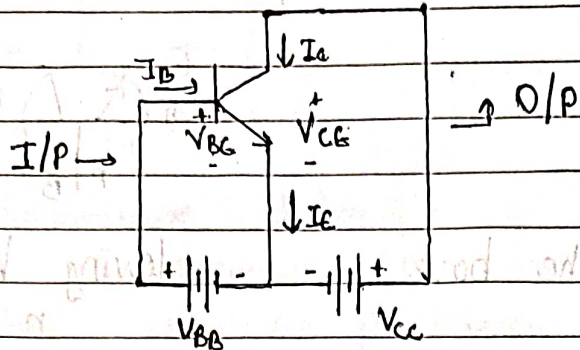 ↓ Ic
IB →
+ VBE -
+ VCE -
→ O/P
I/P →
↓ IE
+ - - +
VBB
VCC